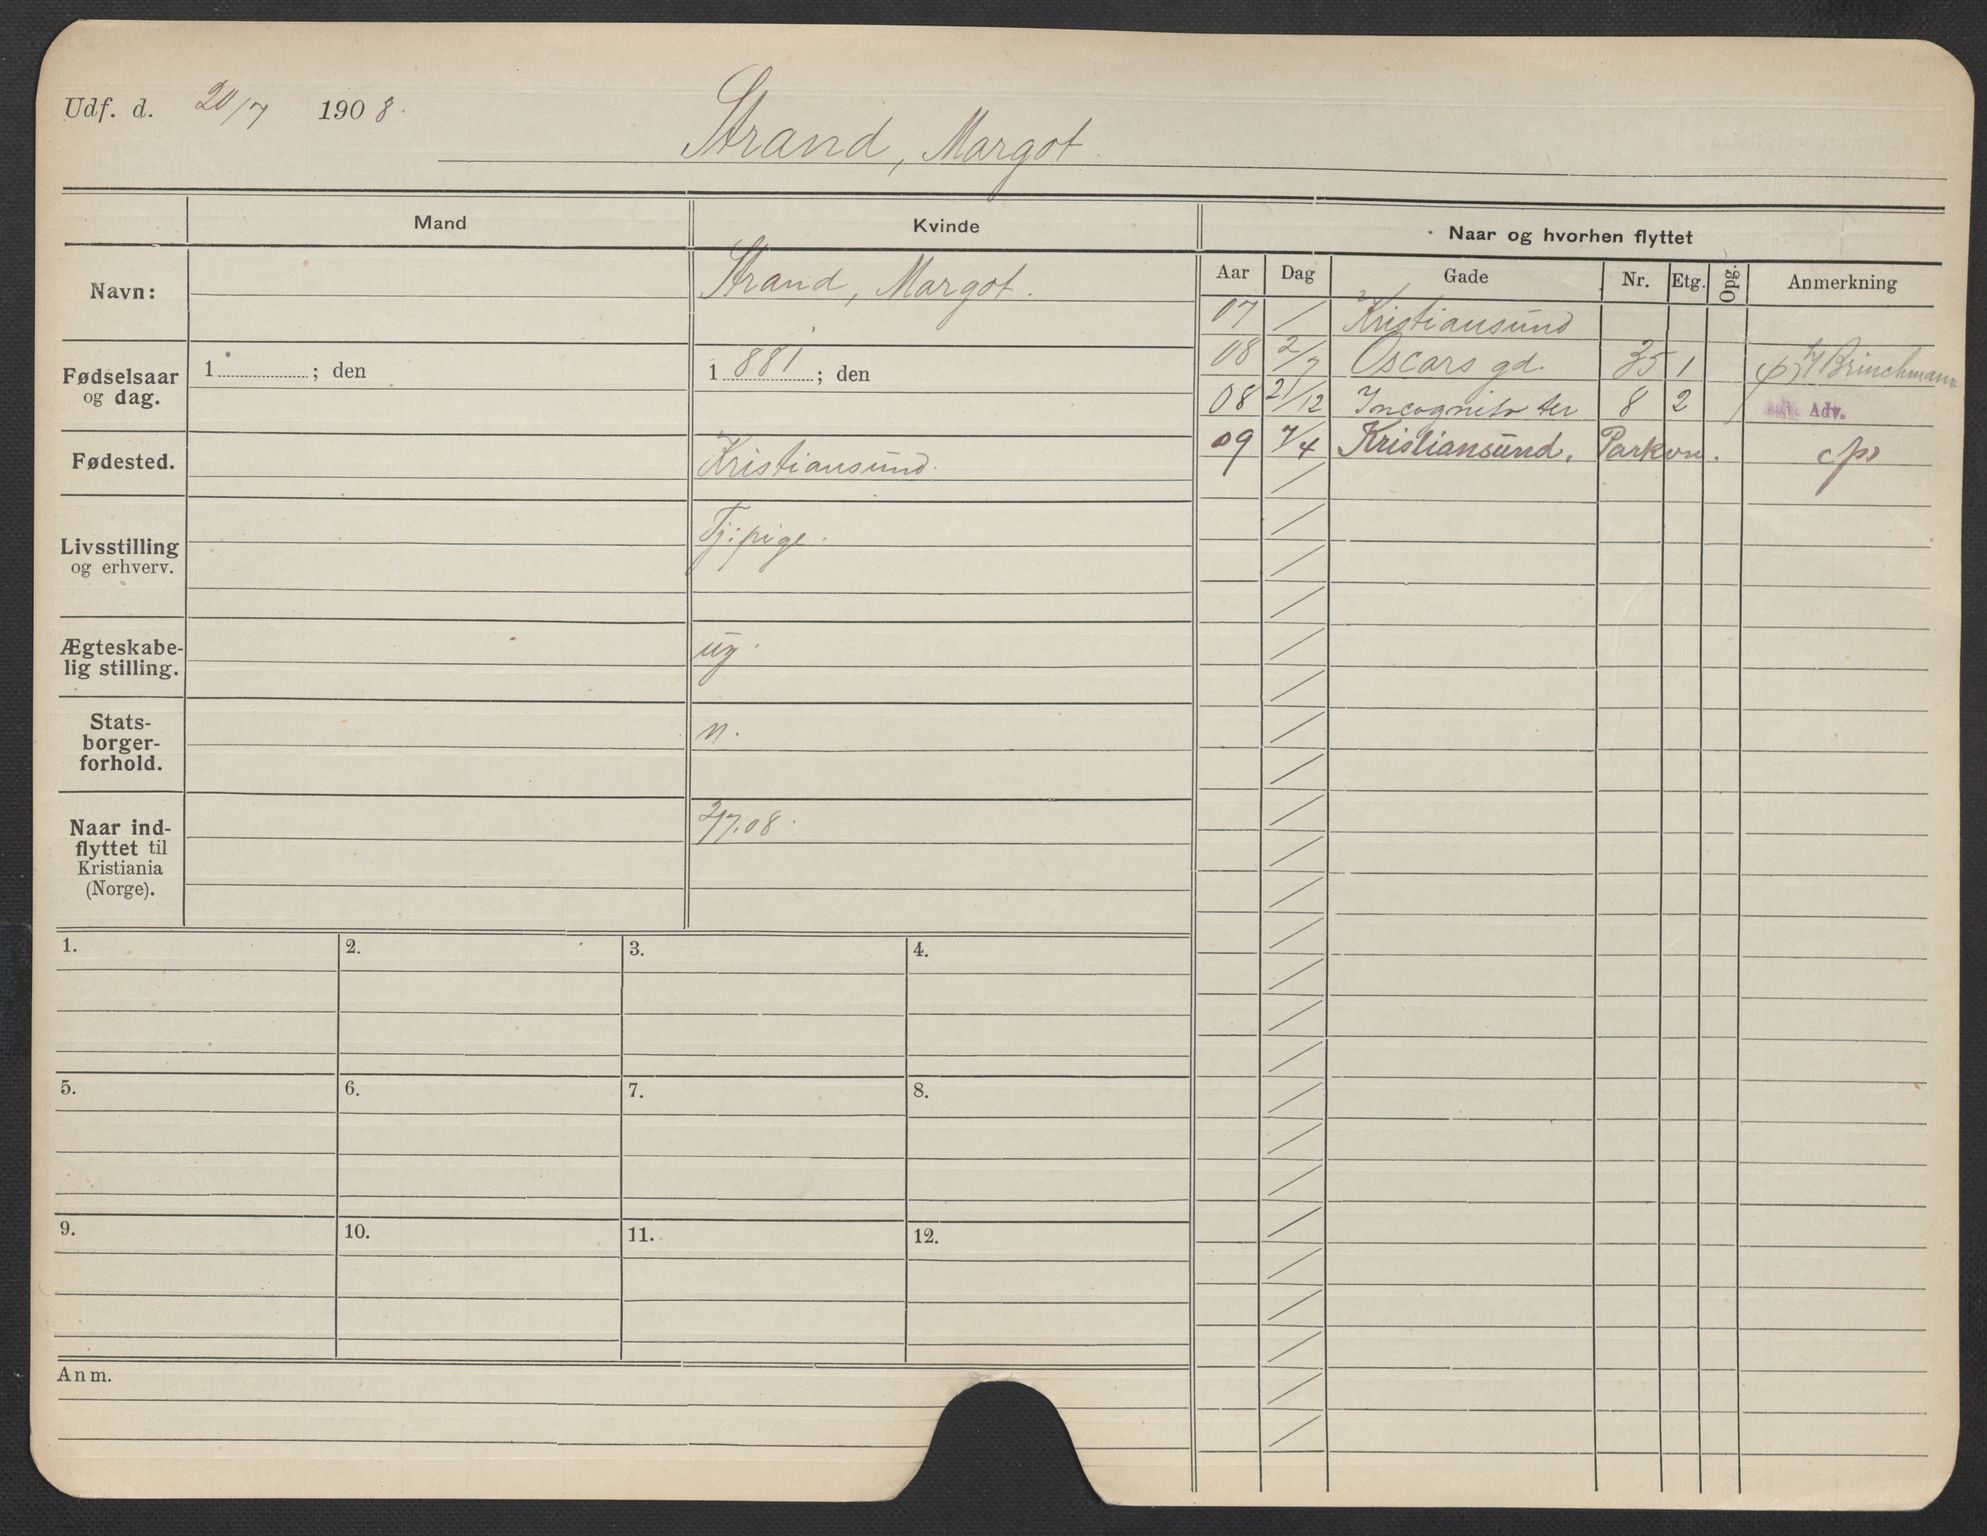 Udf. d. 20/7 1908.
Strand, Margot
Mand
Kvinde
Naar og hvorhen flyttet
Aar Dag Gade Nr. Etg. Opg. Anmerkning
Navn:
Strand, Margot.
Fødselsaar og dag.
1 ; den
1881 ; den
Fødested.
Kristiansund.
Livsstilling og erhverv.
Tj:pige.
Ægteskabe-
lig stilling.
ug.
Stats-
borger-
forhold.
n.
Naar ind-
flyttet til
Kristiania
(Norge).
2/7.08.
07 / Kristiansund
08 2/7 Oscars gd. 35 1 Brinchmann
08 21/12 Incognito ter 8 2 / Adv.
09 7/4 Kristiansund, Parkvn.
1. 2. 3. 4.
5. 6. 7. 8.
9. 10. 11. 12.
Anm.